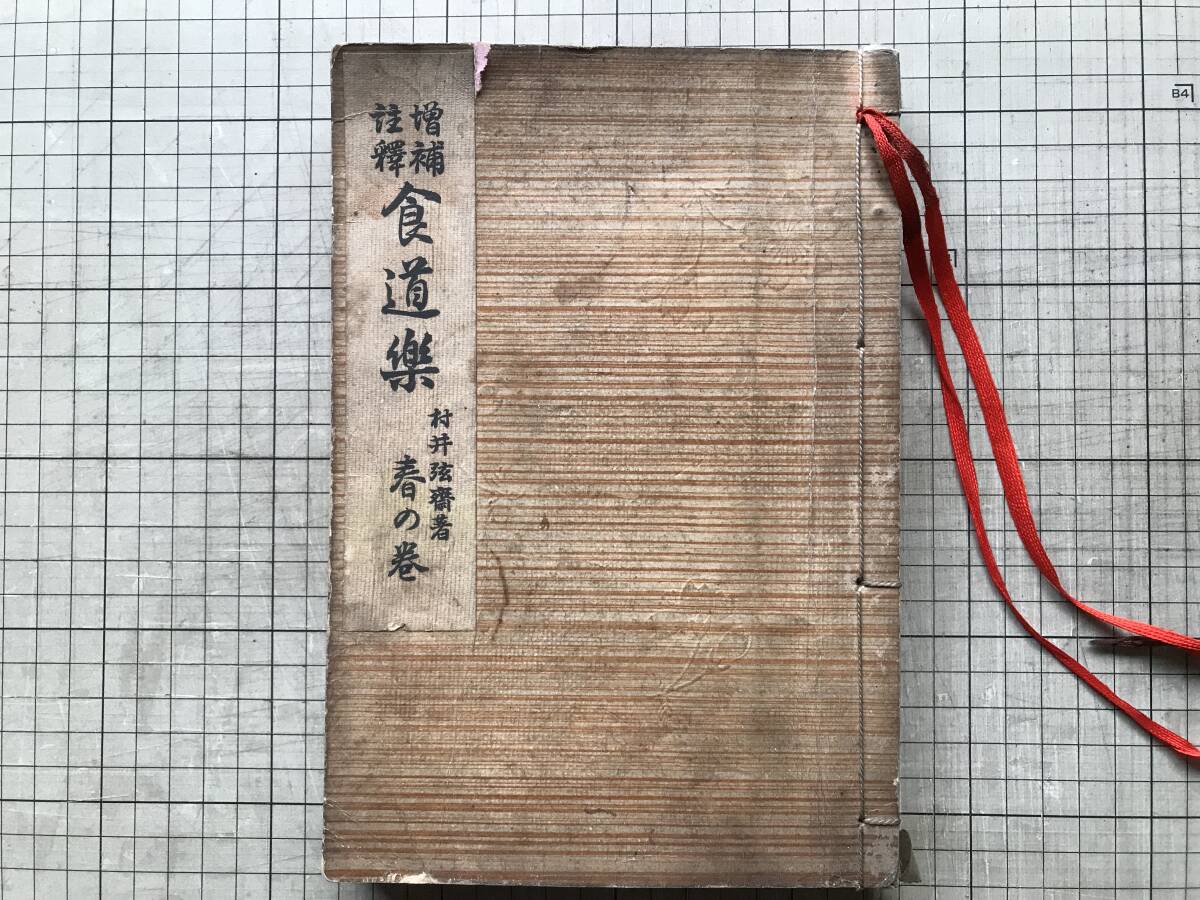 增補
註釋
食道樂
村井弦齋著
春の卷
B4